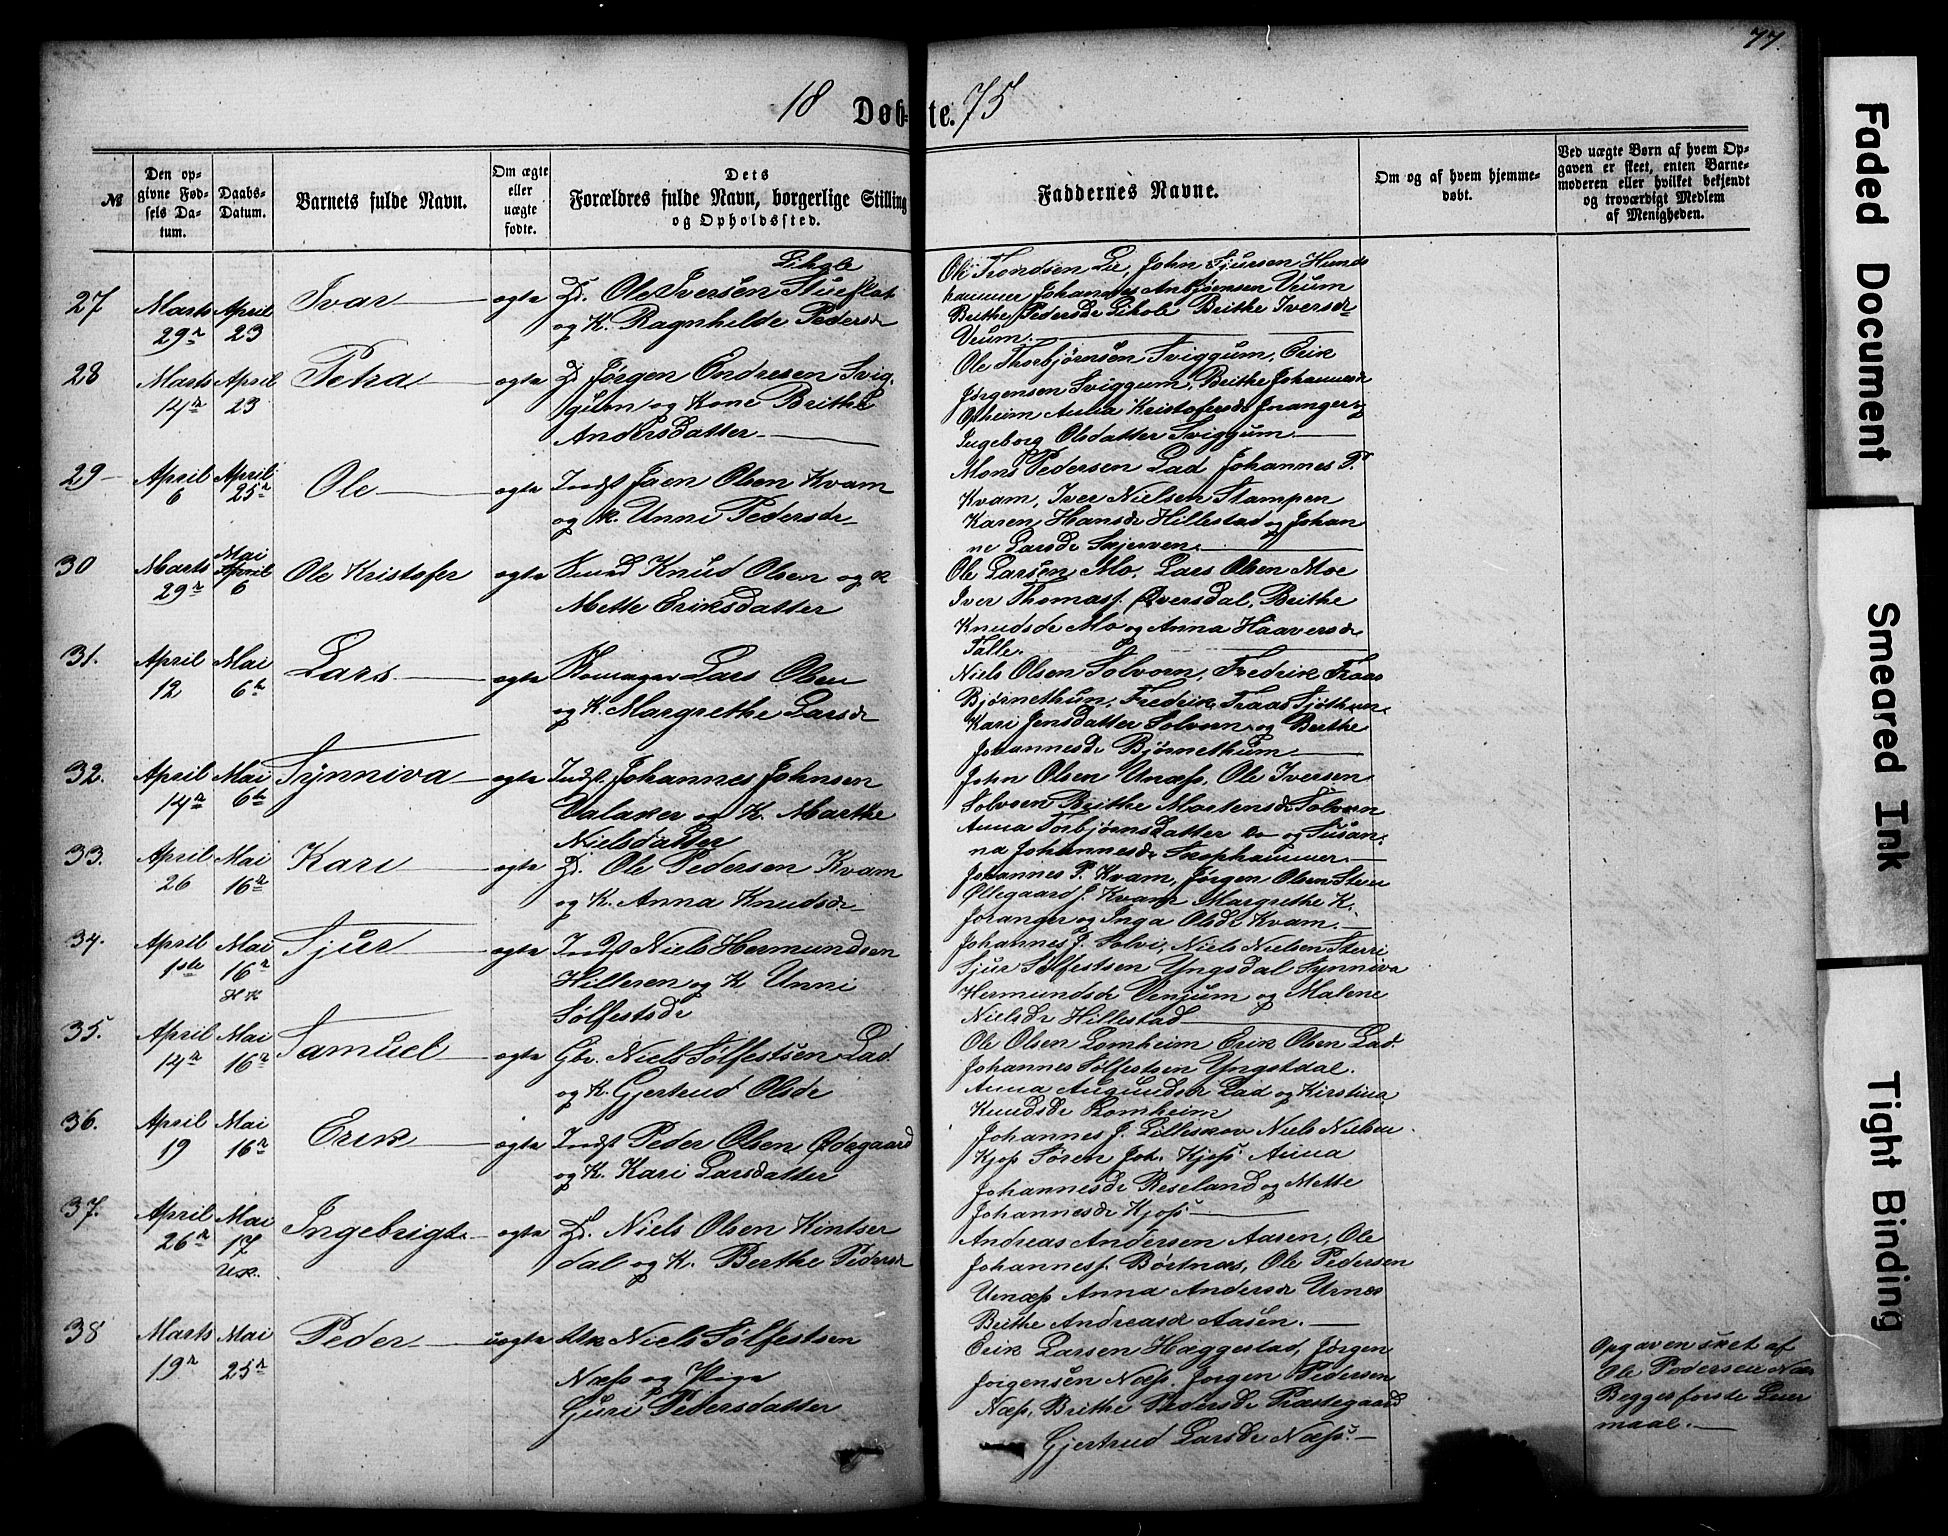 77.
18 Døbte. 75
№
Den opgivne Fødsels Datum.
Daabs-Datum.
Barnets fulde Navn.
Om ægte eller uægte fødte.
Dets Forældres fulde Navn, borgerlige Stilling og Opholdssted.
Faddernes Navne.
Om og af hvem hjemmedøbt.
Ved uægte Børn af hvem Opgaven er skeet, enten Barnemoderen eller hvilket bekjendt og troværdigt Medlem af Menigheden.
27 Marts 29de April 23 Ivar ægte
Lihole
Gd. Ole Iversen Stueflat
og K. Ragnhilde Pedersdr
Ole Trondsen Lie, John Sjursen Hunds
hammer Johannes Anbjørnsen Veum
Brithe Pedersdr Lihole Brithe Iversdr
Veum.
28 Marts 14de April 23 Petra ægte
Gd Jørgen Endresen Svig-
gum og Kone Brithe
Andersdatter
Ole Thorbjørnsen Sviggum, Erik
Jørgensen Sviggum, Brithe Johannesdr
Opheim Anna Kristofersdr Joranger og
Ingeborg Olsdatter Sviggum
29 April 6 April 25de Ole ægte
Indst Jaen Olsen Kvam
og K. Unni Pedersdr
Mons Pedersen Lad Johannes P.
Kvam, Iver Nielsen Stampen
Karen Hansdr Hillestad og Johan
ne Larsdr Skjerven
30 Marts 29de Mai April 6 Ole Kristofer ægte
Knud Olsen og K
Mette Eriksdatter
Ole Larsen Mo, Lars Olsen Moe
Iver Thomass. Qversdal, Brithe
Knudsdr Mo og Anna Haaversdr
Talle.
31. April 12 Mai 6te Lars ægte
Lars Olsen
og K. Margrethe Larsdr
Niels Olsen Solvorn, Fredrik Traas
Bjørnethun, Fredrik Traas
Kari Jensdatter Solvorn og Berthe
Johannesdr Bjørnethun
32. April 14de Mai 6te Synniva ægte
Indst. Johannes Johnsen
Dalaker og K. Marthe
Nielsdatter
John Olsen Urnæss, Ole Iversen
Solvorn Brithe Mortensdr Solvorn
Anna Torbjørnsdatter do og Susan-
na Johannesdr Skophammer
33. April 26 Mai 16de Kari ægte
Gd. Ole Pedersen Kvam
og K. Anna Knudsdr
Johannes P. Kvam, Jørgen Olsen
Ollegaard J. Kvam Margrethe K.
Joranger og Inga Olsdr Kvam
34. April 1ste Mai 16de HK Sjur ægte
Indst Niels Hermundsen
Hilleren og K Unni
Sølfestsdr
Johannes J. Solvi, Niels Nielsen Sterri
Sjur Sølfestsen Yngsdal Synniva
Hermundsdr Venjum og Malene
Nielsdr Hillestad
35. April 14de Mai 16de Samuel ægte
Gbr. Niels Sølfestsen Lad
og K. Gjertrud Olsdr
Ole Olsen Lomheim Erik Olsen Lad.
Johannes Sølfestsen Yngstdal.
Anna Augundsdr Lad og Kirstina
Knudsdr Lomheim
36. April 19 Mai 16de Erik ægte
Indst Peder Olsen Ødegaard
og K. Kari Larsdatter
Johannes J. Lilleskov Niels Nielsen
Kjos Søren Joh. Kjos Anna
Johannesdr Reseland og Mette
Johannesdr Kjos
37. April 26de Mai 17 Ingebrigt ægte
Gd. Niels Olsen Kintser
dal og K. Berthe Pedersdr
Andreas Andersen Aasen, Ole
Johannesf. Børtnæs, Ole Pedersen
Urnæss Anna Andersdr Urnes
Brithe Andreasdr Aasen.
38 Marts 19de Mai 25de Peder uægte
Niels Sølfestsen
Næss og Pige
Guri Pedersdatter
Erik Larsen Haggestad, Jørgen
Jørgensen Næss, Jørgen Pedersen
Næss, Brithe Pedersdr Præstegaard
Gjertrud Larsdr Næss.
Opgaven sket af
Ole Pedersen Næs
Begges første Leier
maal.
Faded Document
Smeared Ink
Tight Binding